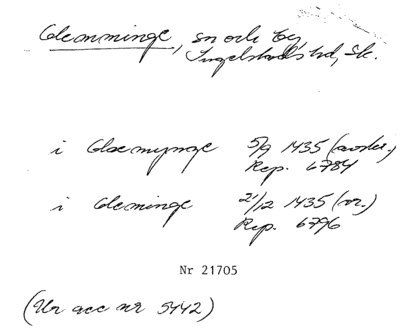 Glemminge, sn och by,
Ingelstads hd, Sk.
i Glæmynge 5/9 1435 (avskr.)
Rep. 6784
i Gleminge 21/12 1435 (or.)
Rep. 6796
Nr 21705
(Ur acc nr 5442)